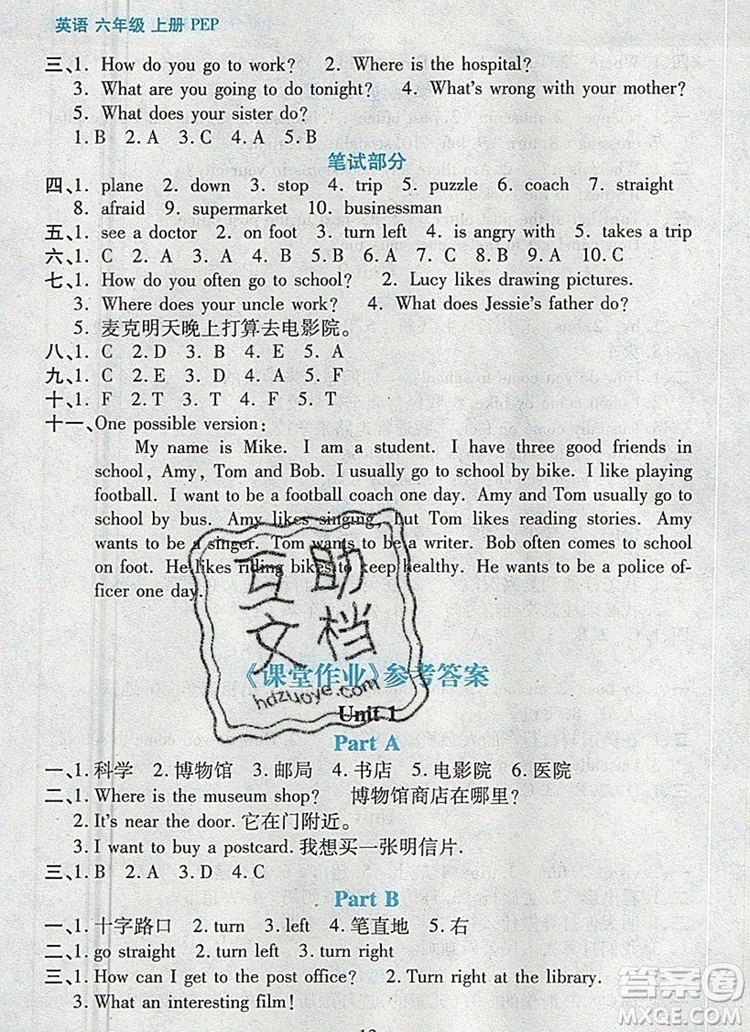 英语 六年级 上册 PEP
三、1. How do you go to work? 2. Where is the hospital?
3. What are you going to do tonight? 4. What's wrong with your mother?
5. What does your sister do?
1. B 2. A 3. C 4. A 5. B
笔试部分
四、1. plane 2. down 3. stop 4. trip 5. puzzle 6. coach 7. straight
8. afraid 9. supermarket 10. businessman
五、1. see a doctor 2. on foot 3. turn left 4. is angry with 5. takes a trip
六、1. C 2. A 3. A 4. B 5. B 6. C 7. A 8. C 9. B 10. C
七、1. How do you often go to school? 2. Lucy likes drawing pictures.
3. Where does your uncle work? 4. What does Jessie's father do?
5. 麦克明天晚上打算去电影院。
八、1. C 2. D 3. E 4. B 5. A
九、1. C 2. E 3. D 4. A 5. F
十、1. F 2. T 3. F 4. F 5. T
十一、One possible version:
My name is Mike. I am a student. I have three good friends in
school, Amy, Tom and Bob. I usually go to school by bike. I like playing
football. I want to be a football coach one day. Amy and Tom usually go to
school by bus. Amy likes singing, but Tom likes reading stories. Amy
wants to be a singer. Tom wants to be a writer. Bob often comes to school
on foot. He likes riding bikes to keep healthy. He wants to be a police of-
ficer one day.
互助
文档
hdzuoye.com
《课堂作业》参考答案
Unit 1
Part A
一、1. 科学 2. 博物馆 3. 邮局 4. 书店 5. 电影院 6. 医院
二、1. Where is the museum shop? 博物馆商店在哪里?
2. It's near the door. 它在门附近。
3. I want to buy a postcard. 我想买一张明信片.
三、1. B 2. A 3. D 4. C
Part B
一、1. 十字路口 2. turn 3. left 4. 笔直地 5. 右
二、1. go straight 2. turn left 3. turn right
三、1. How can I get to the post office? 2. Turn right at the library.
3. What an interesting film!
答案圈
MXQE.COM